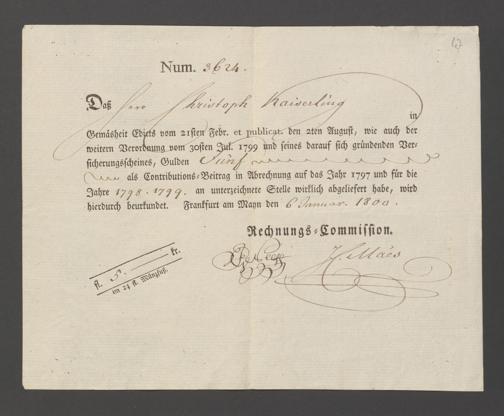 17
Num. 3624.
Daß Herr Christoph Kaiserling
in
Gemäsheit Edicts vom 21sten Febr. et publicat. den 2ten August, wie auch der
weitern Verordnung vom 30sten Jul. 1799 und seines darauf sich gründenden Ver-
sicherungsscheines, Gulden Fünf
als Contributions-Beitrag in Abrechnung auf das Jahr 1797 und für die
Jahre 1798. 1799. an unterzeichnete Stelle wirklich abgeliefert habe, wird
hierdurch beurkundet. Frankfurt am Mayn den 6 Januar. 1800.
Rechnungs-Commission.
fl. 5. kr.
im 24 fl. Münzfuß.